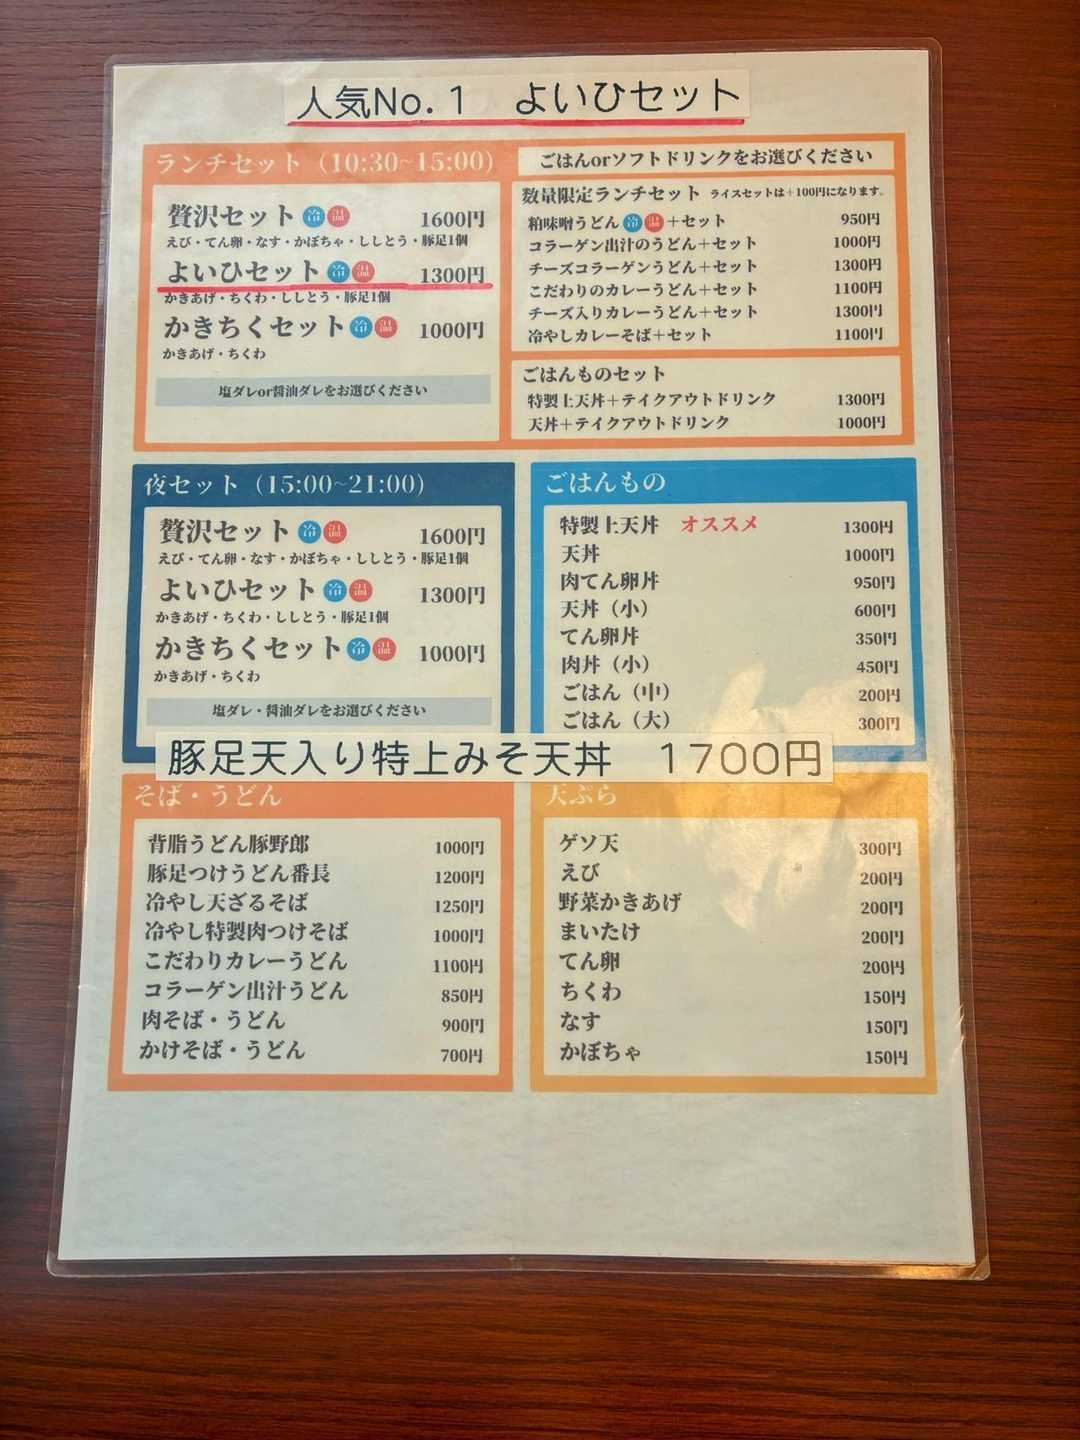 人気No.1　よいひセット
ランチセット（10:30~15:00）
贅沢セット 冷 温 1600円
えび・てん卵・なす・かぼちゃ・ししとう・豚足1個
よいひセット 冷 温 1300円
かきあげ・ちくわ・ししとう・豚足1個
かきちくセット 冷 温 1000円
かきあげ・ちくわ
塩ダレor醤油ダレをお選びください
ごはんorソフトドリンクをお選びください
数量限定ランチセット ライスセットは＋100円になります。
粕味噌うどん 冷 温 ＋セット 950円
コラーゲン出汁のうどん＋セット 1000円
チーズコラーゲンうどん＋セット 1300円
こだわりのカレーうどん＋セット 1100円
チーズ入りカレーうどん＋セット 1300円
冷やしカレーそば＋セット 1100円
ごはんものセット
特製上天丼＋テイクアウトドリンク 1300円
天丼＋テイクアウトドリンク 1000円
夜セット（15:00~21:00）
贅沢セット 冷 温 1600円
えび・てん卵・なす・かぼちゃ・ししとう・豚足1個
よいひセット 冷 温 1300円
かきあげ・ちくわ・ししとう・豚足1個
かきちくセット 冷 温 1000円
かきあげ・ちくわ
塩ダレ・醤油ダレをお選びください
ごはんもの
特製上天丼 オススメ 1300円
天丼 1000円
肉てん卵丼 950円
天丼（小） 600円
てん卵丼 350円
肉丼（小） 450円
ごはん（中） 200円
ごはん（大） 300円
豚足天入り特上みそ天丼　1700円
そば・うどん
背脂うどん豚野郎 1000円
豚足つけうどん番長 1200円
冷やし天ざるそば 1250円
冷やし特製肉つけそば 1000円
こだわりカレーうどん 1100円
コラーゲン出汁うどん 850円
肉そば・うどん 900円
かけそば・うどん 700円
天ぷら
ゲソ天 300円
えび 200円
野菜かきあげ 200円
まいたけ 200円
てん卵 200円
ちくわ 150円
なす 150円
かぼちゃ 150円